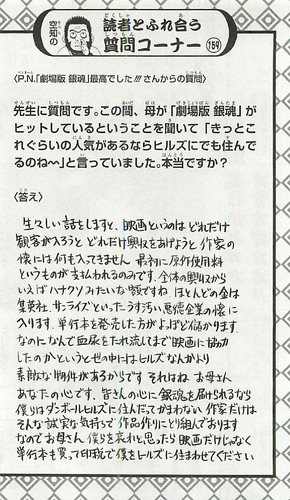 空知の
読者とふれ合う
質問コーナー
159
〈P.N.「劇場版 銀魂」最高でした!!!さんからの質問〉
先生に質問です。この間、母が「劇場版 銀魂」が
ヒットしているということを聞いて「きっとこ
れぐらいの人気があるならヒルズにでも住んで
るのね〜」と言っていました。本当ですか?
〈答え〉
生々しい話をしますと、映画というのはどれだけ
観客が入ろうと どれだけ興収をあげようと 作家の
懐には何も入ってきません 最初に原作使用料
というものが支払われるのみです。全体の興収から
いえばハナクソみたいな額ですね ほとんどの金は
集英社、サンライズといったうす汚い悪徳企業の懐に
入ります。単行本を発売した方がよっぽど儲かります
なのになんで血尿をたれ流してまで映画に協力
したのかというと世の中にはヒルズなんかより
素敵な物件があるからです それはね お母さん
あなたの心です。皆さんの心に銀魂を届けられるなら
僕らはダンボールヒルズに住んだってかまわない 作家だけは
そんな誠実な気持ちで作品作りにとり組んでおります
なのでお母さん 僕らを哀れと思ったら映画だけじゃなく
単行本も買って印税で僕をヒルズに住まわせてください